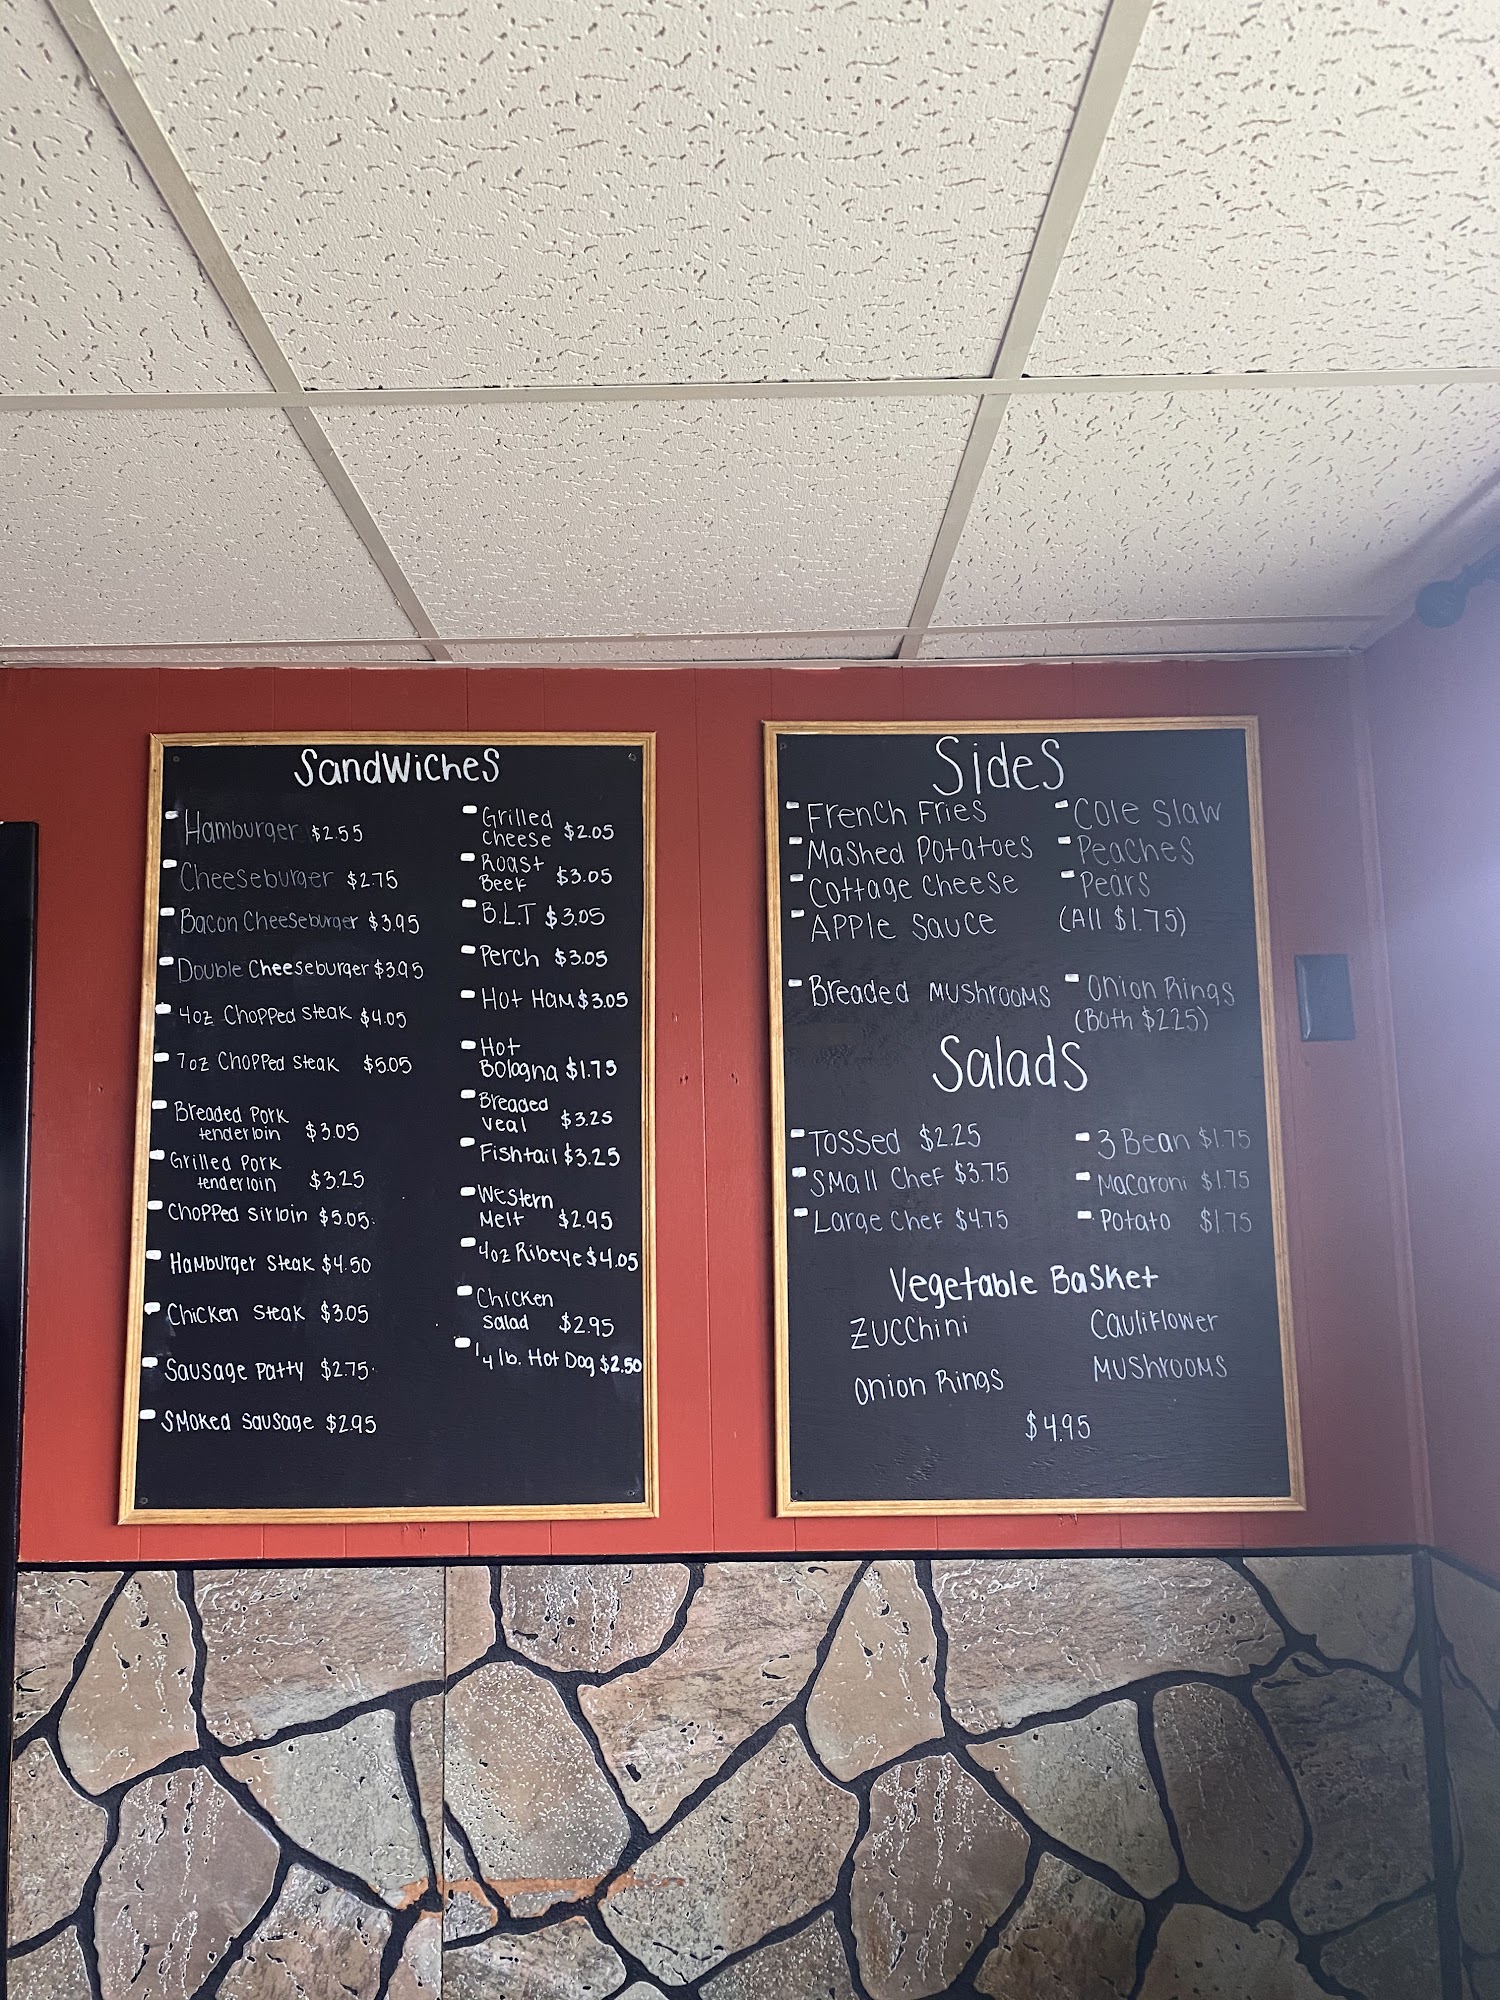 Sandwiches
Hamburger $2.55
Cheeseburger $2.75
Bacon Cheeseburger $3.95
Double Cheeseburger $3.95
4oz Chopped Steak $4.05
7oz Chopped Steak $5.05
Breaded Pork
tenderloin $3.05
Grilled Pork
tenderloin $3.25
Chopped Sirloin $5.05
Hamburger Steak $4.50
Chicken Steak $3.05
Sausage Patty $2.75
Smoked Sausage $2.95
Grilled
Cheese $2.05
Roast
Beef $3.05
B.L.T $3.05
Perch $3.05
Hot Ham $3.05
Hot
Bologna $1.75
Breaded
veal $3.25
Fishtail $3.25
Western
Melt $2.95
4oz Ribeye $4.05
Chicken
Salad $2.95
1/4 lb. Hot Dog $2.50
Sides
French Fries
Mashed Potatoes
Cottage Cheese
Apple Sauce
Cole Slaw
Peaches
Pears
(All $1.75)
Breaded Mushrooms
Onion Rings
(Both $2.25)
Salads
Tossed $2.25
Small Chef $3.75
Large Chef $4.75
3 Bean $1.75
Macaroni $1.75
Potato $1.75
Vegetable Basket
Zucchini
Cauliflower
Onion Rings
Mushrooms
$4.95